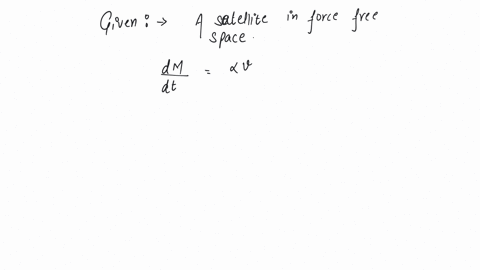 Given :→ A satellite in force free
space.
dM/dt = αv